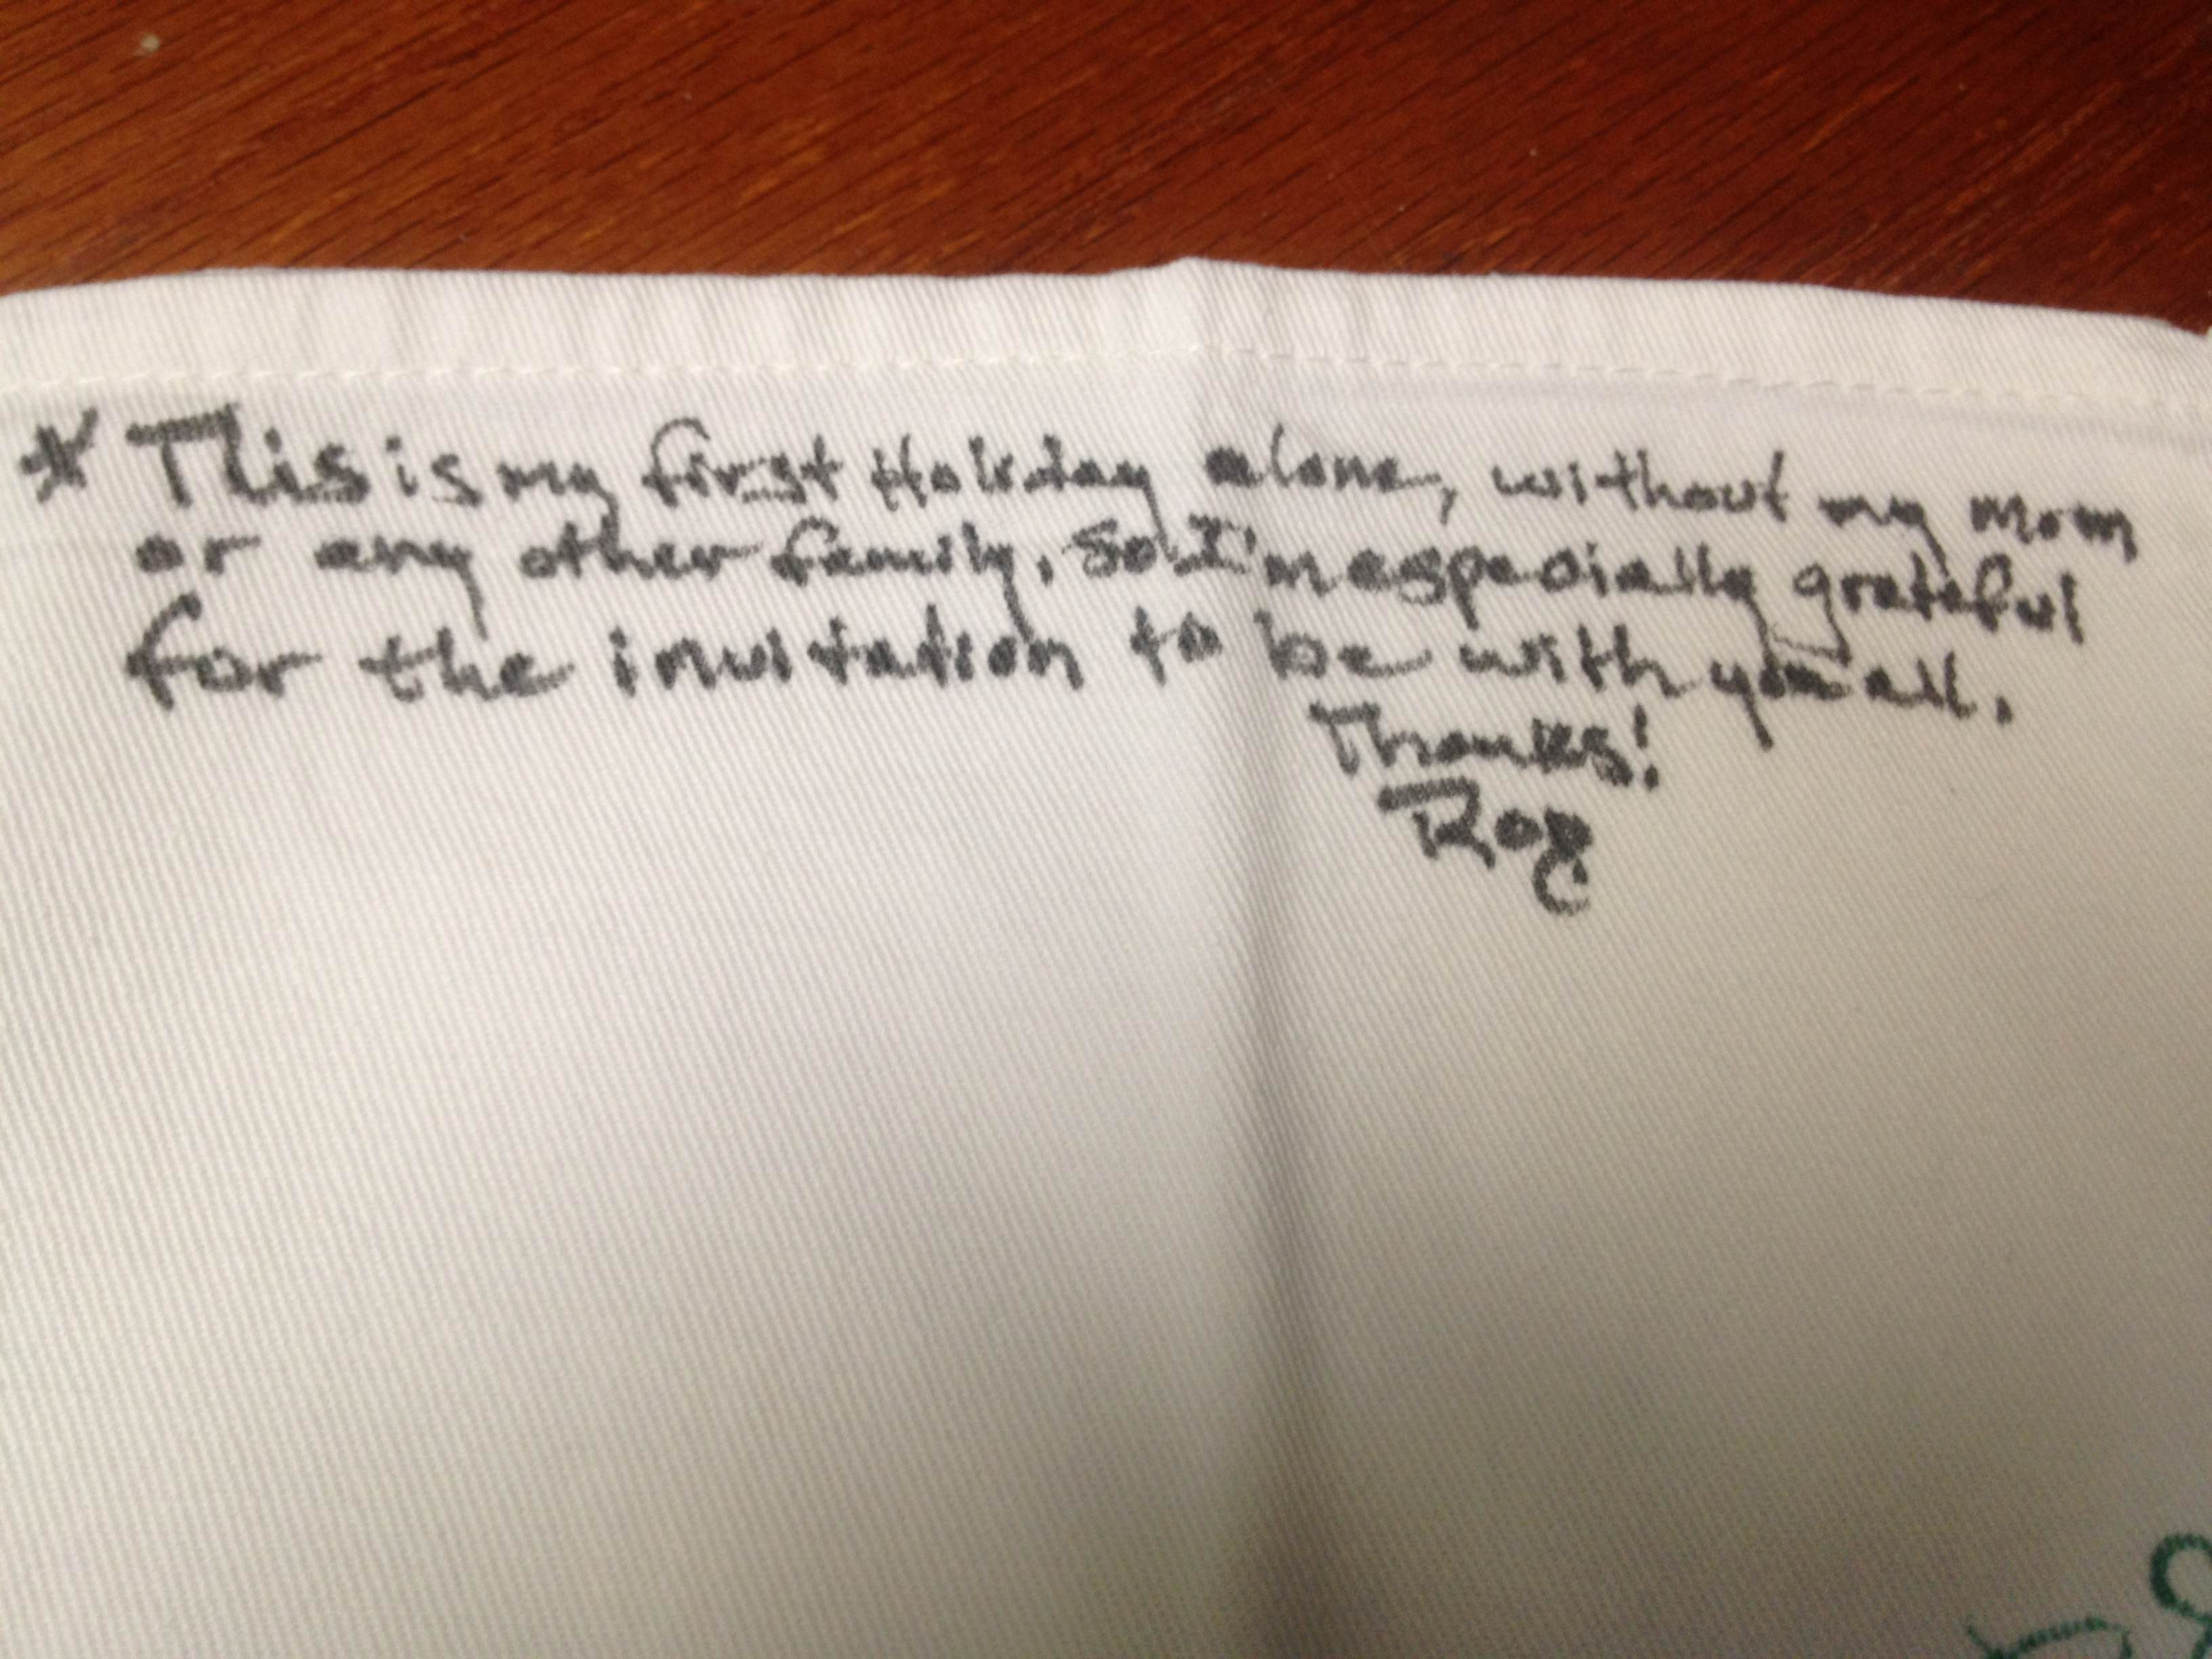 * This is my first Holiday alone, without my Mom
or any other family. So I'm especially grateful
for the invitation to be with you all.
Thanks!
Roz